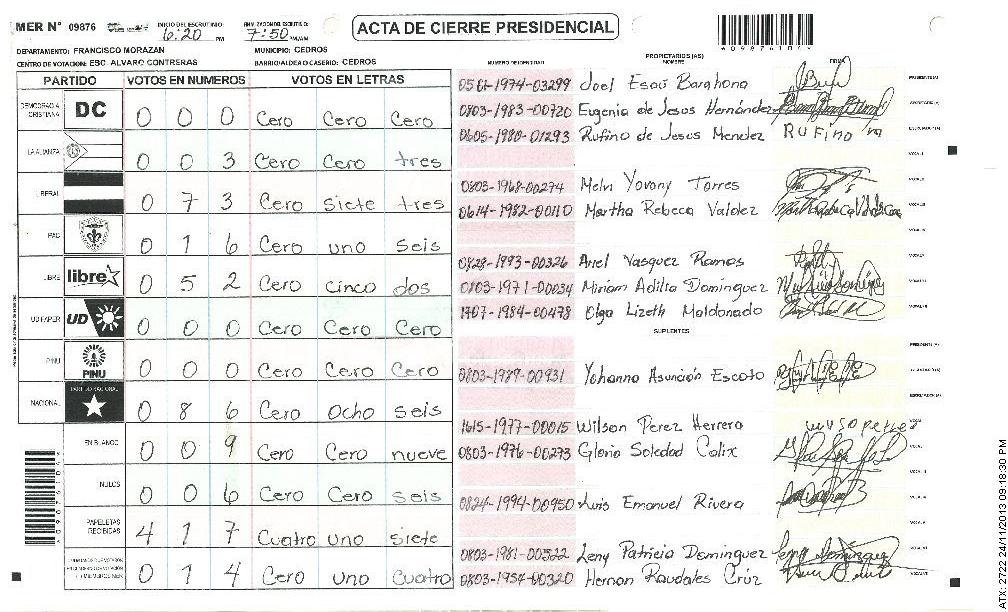 MER N° 09876 INICIO DEL ESCRUTINIO: 6:20 PM 7:50 PM/AM
ACTA DE CIERRE PRESIDENCIAL
DEPARTAMENTO: FRANCISCO MORAZAN MUNICIPIO: CEDROS
CENTRO DE VOTACION: ESC. ALVARO CONTRERAS BARRIO/ALDEA O CASERIO: CEDROS
PARTIDO VOTOS EN NUMEROS VOTOS EN LETRAS
DEMOCRACIA CRISTIANA DC 0 0 0 Cero Cero Cero
LA ALIANZA 0 0 3 Cero Cero tres
LIBERAL 0 7 3 Cero Siete tres
PAC 0 1 6 Cero uno seis
LIBRE libre 0 5 2 Cero cinco dos
UD FAPER UD 0 0 0 Cero Cero Cero
PINU PINU 0 0 0 Cero Cero Cero
NACIONAL PARTIDO NACIONAL 0 8 6 Cero Ocho seis
EN BLANCO 0 0 9 Cero Cero nueve
NULOS 0 0 6 Cero Cero seis
PAPELETAS RECIBIDAS 4 1 7 Cuatro uno siete
0 1 4 Cero uno cuatro
NUMERO DE IDENTIDAD PROPIETARIOS (AS) NOMBRE FIRMA
0501-1974-03299 Joel Esaú Barahona PRESIDENTE(A)
0803-1983-00720 Eugenia de Jesus Hernández SECRETARIO(A)
0605-1980-01293 Rufino de Jesus Mendez RUFINO ESCRUTADOR(A)
VOCAL I
0803-1968-00274 Melvi Yovony Torres
0614-1982-00110 Martha Rebeca Valdez
0828-1993-00326 Ariel Vasquez Ramos
0803-1971-00034 Miriam Adilia Dominguez
1707-1984-00478 Olga Lizeth Maldonado
SUPLENTES
0803-1989-00931 Yohanna Asunción Escoto
1615-1977-00015 Wilson Perez Herrera
0803-1976-00273 Gloria Soledad Calix
0824-1994-00950 Luis Emanuel Rivera
0803-1981-00522 Leny Patricia Dominguez
0803-1954-00320 Hernan Raudales Crúz
ATX: 2722 24/11/2013 09:18:30 PM